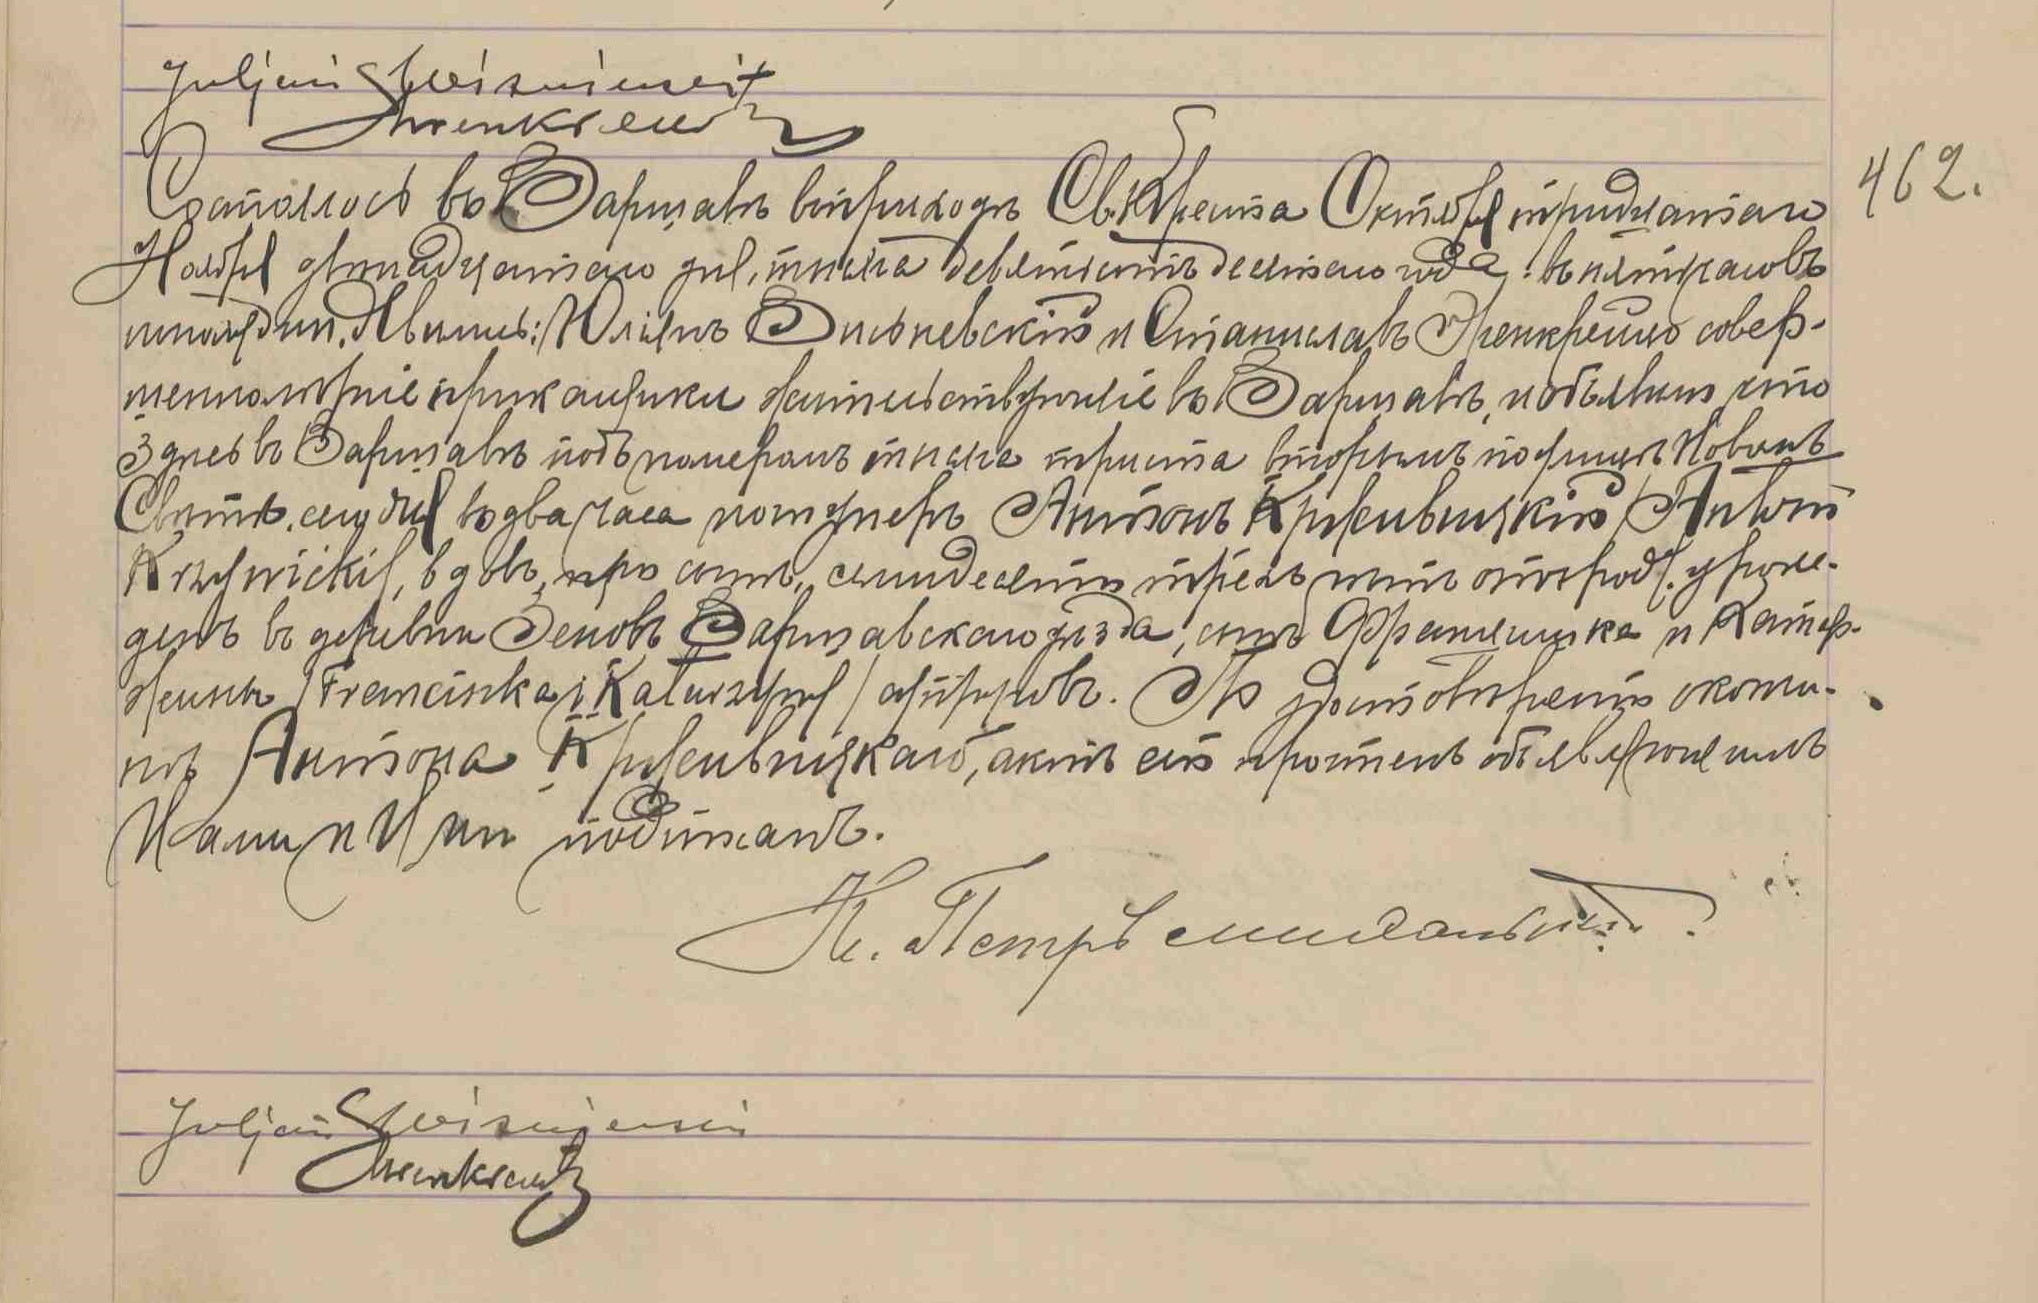 Juljan Wiśniewski
Ehrenkreutz
462.
Состоялось въ Варшавѣ въ приходѣ Св. Креста Октября тридцатаго
Ноября двѣнадцатаго дня, тысяча девятьсотъ десятаго года въ пять часовъ
пополудни. Явились: Юліанъ Висьневскій и Станиславъ Эренкрейцъ совер-
шеннолѣтніе прикащики жительствующіе въ Варшавѣ, и объявили что
здѣсь въ Варшавѣ подъ номеромъ тысяча триста вторымъ по улицѣ Новомъ
Свѣтѣ, сего дня въ два часа умеръ Антонъ Кржевицкій /Antoni
Krzywicki/, вдовъ, семидесяти трехъ лѣтъ отъ роду, урожде-
денъ въ деревни Варшавскаго уѣзда, сынъ Францишка и Катар-
жины /Franciszka i Katarzyny/ супруговъ. По удостовѣреніи о кончи-
нѣ Антона Кржевицкаго, актъ сей прочтенъ объявляющимъ
Нами и Ими подписанъ.
Кс. Петръ
Juljan Wiśniewski
Ehrenkreutz